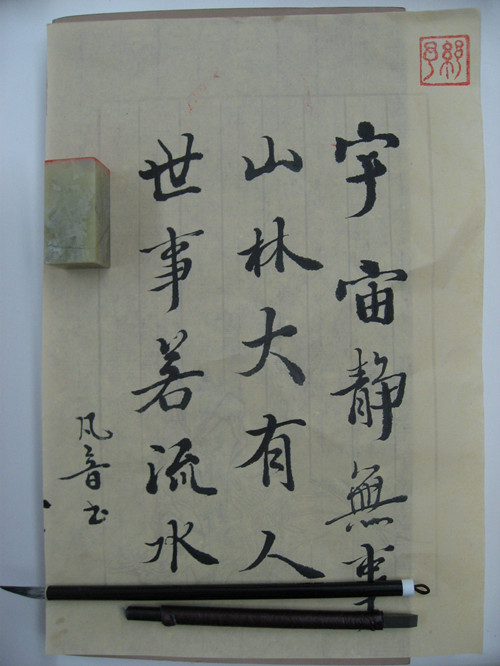 宇宙静無事
山林大有人
世事若流水
凡音书